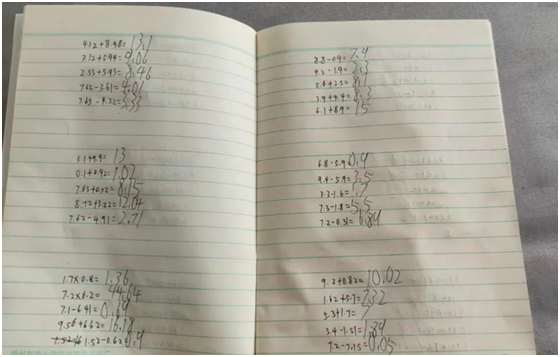 4.12+8.98=13.1
3.12+5.94=9.06
2.53+5.93=8.46
7.62-3.61=4.01
7.65-4.32=3.33
3.1+9.9=13
0.1+0.92=1.02
7.63+0.52=8.15
8.72+3.32=12.04
7.62-4.91=2.71
1.7×0.8=1.36
7.2×6.2=44.64
7.1-6.41=0.69
9.56+6.62=16.18
1.52-0.62=0.9
8.8-0.9=7.9
4.2-1.9=2.3
5.6+2.5=8.1
3.9+4.4=8.3
6.1+8.9=15
6.8-5.9=0.9
9.4-5.9=3.5
3.3-1.6=1.7
7.3-1.8=5.5
7.2-0.31=6.89
9.2+0.82=10.02
1.62+5.7=7.32
5.3+1.7=7
3.4-1.51=1.89
7.2-7.15=0.05